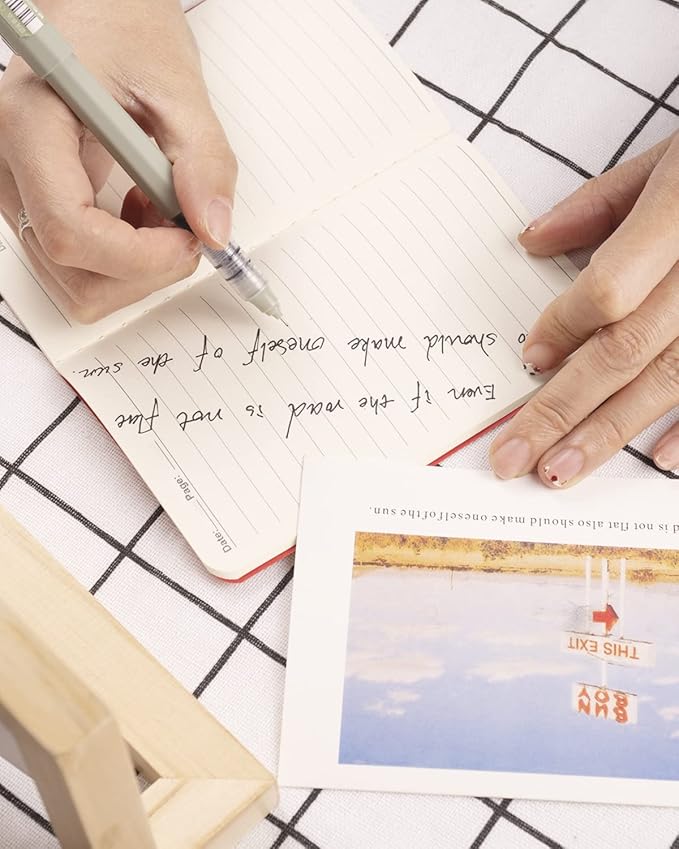 Date: Page:
Even if the road is not flat
should make oneself of the sun.
is not flat also should make oneself of the sun.
BUN
BOY
THIS EXIT